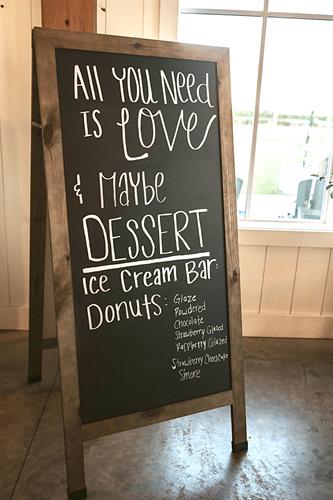 All You Need
is Love
& Maybe
Dessert
Ice Cream Bar:
Donuts: Glaze
Powdered
Chocolate
Strawberry Glazed
Raspberry Glazed
Strawberry Cheescake
S'more